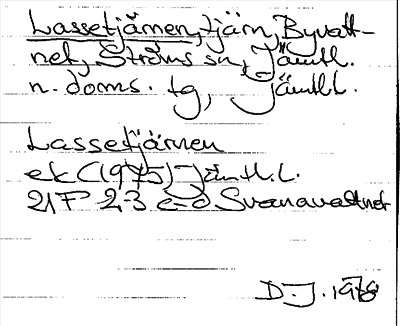 Lassetjärnen, tjärn, Byvatt-
net, Ströms sn, Jämtl.
n. doms. tg, Jämtl.l.
Lassetjärnen
ek (1975) Jämtl.l.
21F 2-3 c-d Svanavattnet
D.J. 1978